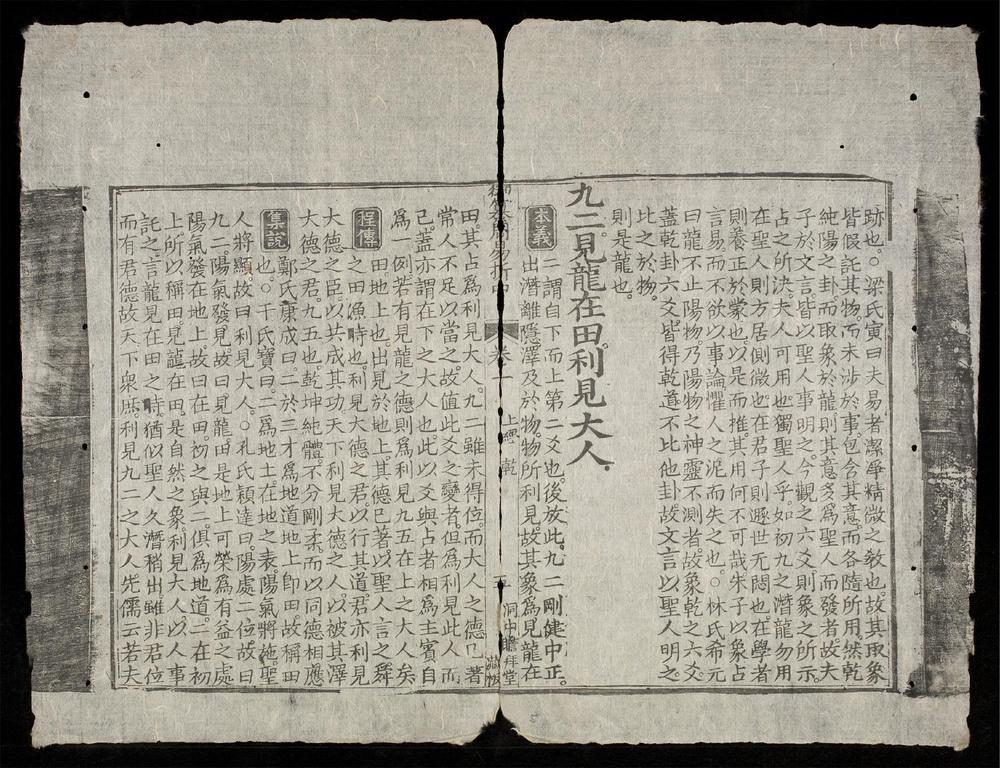 跡也○梁氏寅曰夫易者潔凈精微之教也故其取象
皆假託其物而未涉於事包含其意而各隨所用然乾
純陽之卦而取象於龍則其意多為聖人而發者故夫
子於文言皆以聖人事明之今觀之六爻則象之所示
占之所決夫人可用也獨聖人乎如初九之潛龍勿用
在聖人則方居側微也在君子則遯世无悶也在學者
則養正於蒙也以是而推其用何不可哉朱子以象占
言易而不欲以事論懼人之泥而失之也○林氏希元
曰龍不止陽物乃陽物之神靈不測者故象乾之六爻
蓋乾卦六爻皆得乾道不比他卦故文言以聖人明之
比之於物
則是龍也
九二見龍在田利見大人
本義 二謂自下而上第二爻也後放此九二剛健中正
出潛離隱澤及於物物所利見故其象為見龍在
卷一 上經 乾 五 洞中瞻拜堂藏板
田其占為利見大人九二雖未得位而大人之德已著
常人不足以當之故值此爻之變者但為利見此人而
己蓋亦謂在下之大人也此以爻與占者相為主賓自
為一例若有見龍之德則為利見九五在上之大人矣
程傳 田地上也出見於地上其德已著以聖人言之舜
之田漁時也利見大德之君以行其道君亦利見
大德之臣以共成其功天下利見大德之人以被其澤
大德之君九五也乾坤純體不分剛柔而以同德相應
集說 鄭氏康成曰二於三才為地道地上即田故稱田
也○干氏寶曰二為地上在地之表陽氣將施聖
人將顯故曰利見大人○孔氏穎達曰陽處二位故曰
九二陽氣發見故曰見龍田是地上可榮為有益之處
陽氣發在地上故曰在田初之與二俱為地道二在初
上所以稱田見龍在田是自然之象利見大人以人事
託之言龍見在田之時猶似聖人久潛稍出雖非君位
而有君德故天下眾庶利見九二之大人先儒云若夫